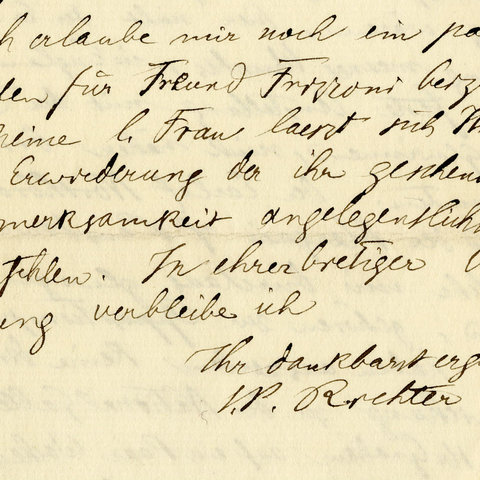 h erlaube mir noch ein pa
den für Freund Frizzoni beiz
eine l. Frau laesst sich Ih
Erwiderung der ihr geschen
merksamkeit angelegentlich
fehlen. In ehrerbietiger
ung verbleibe ich
Ihr dankbarst erge
J.P. Richter